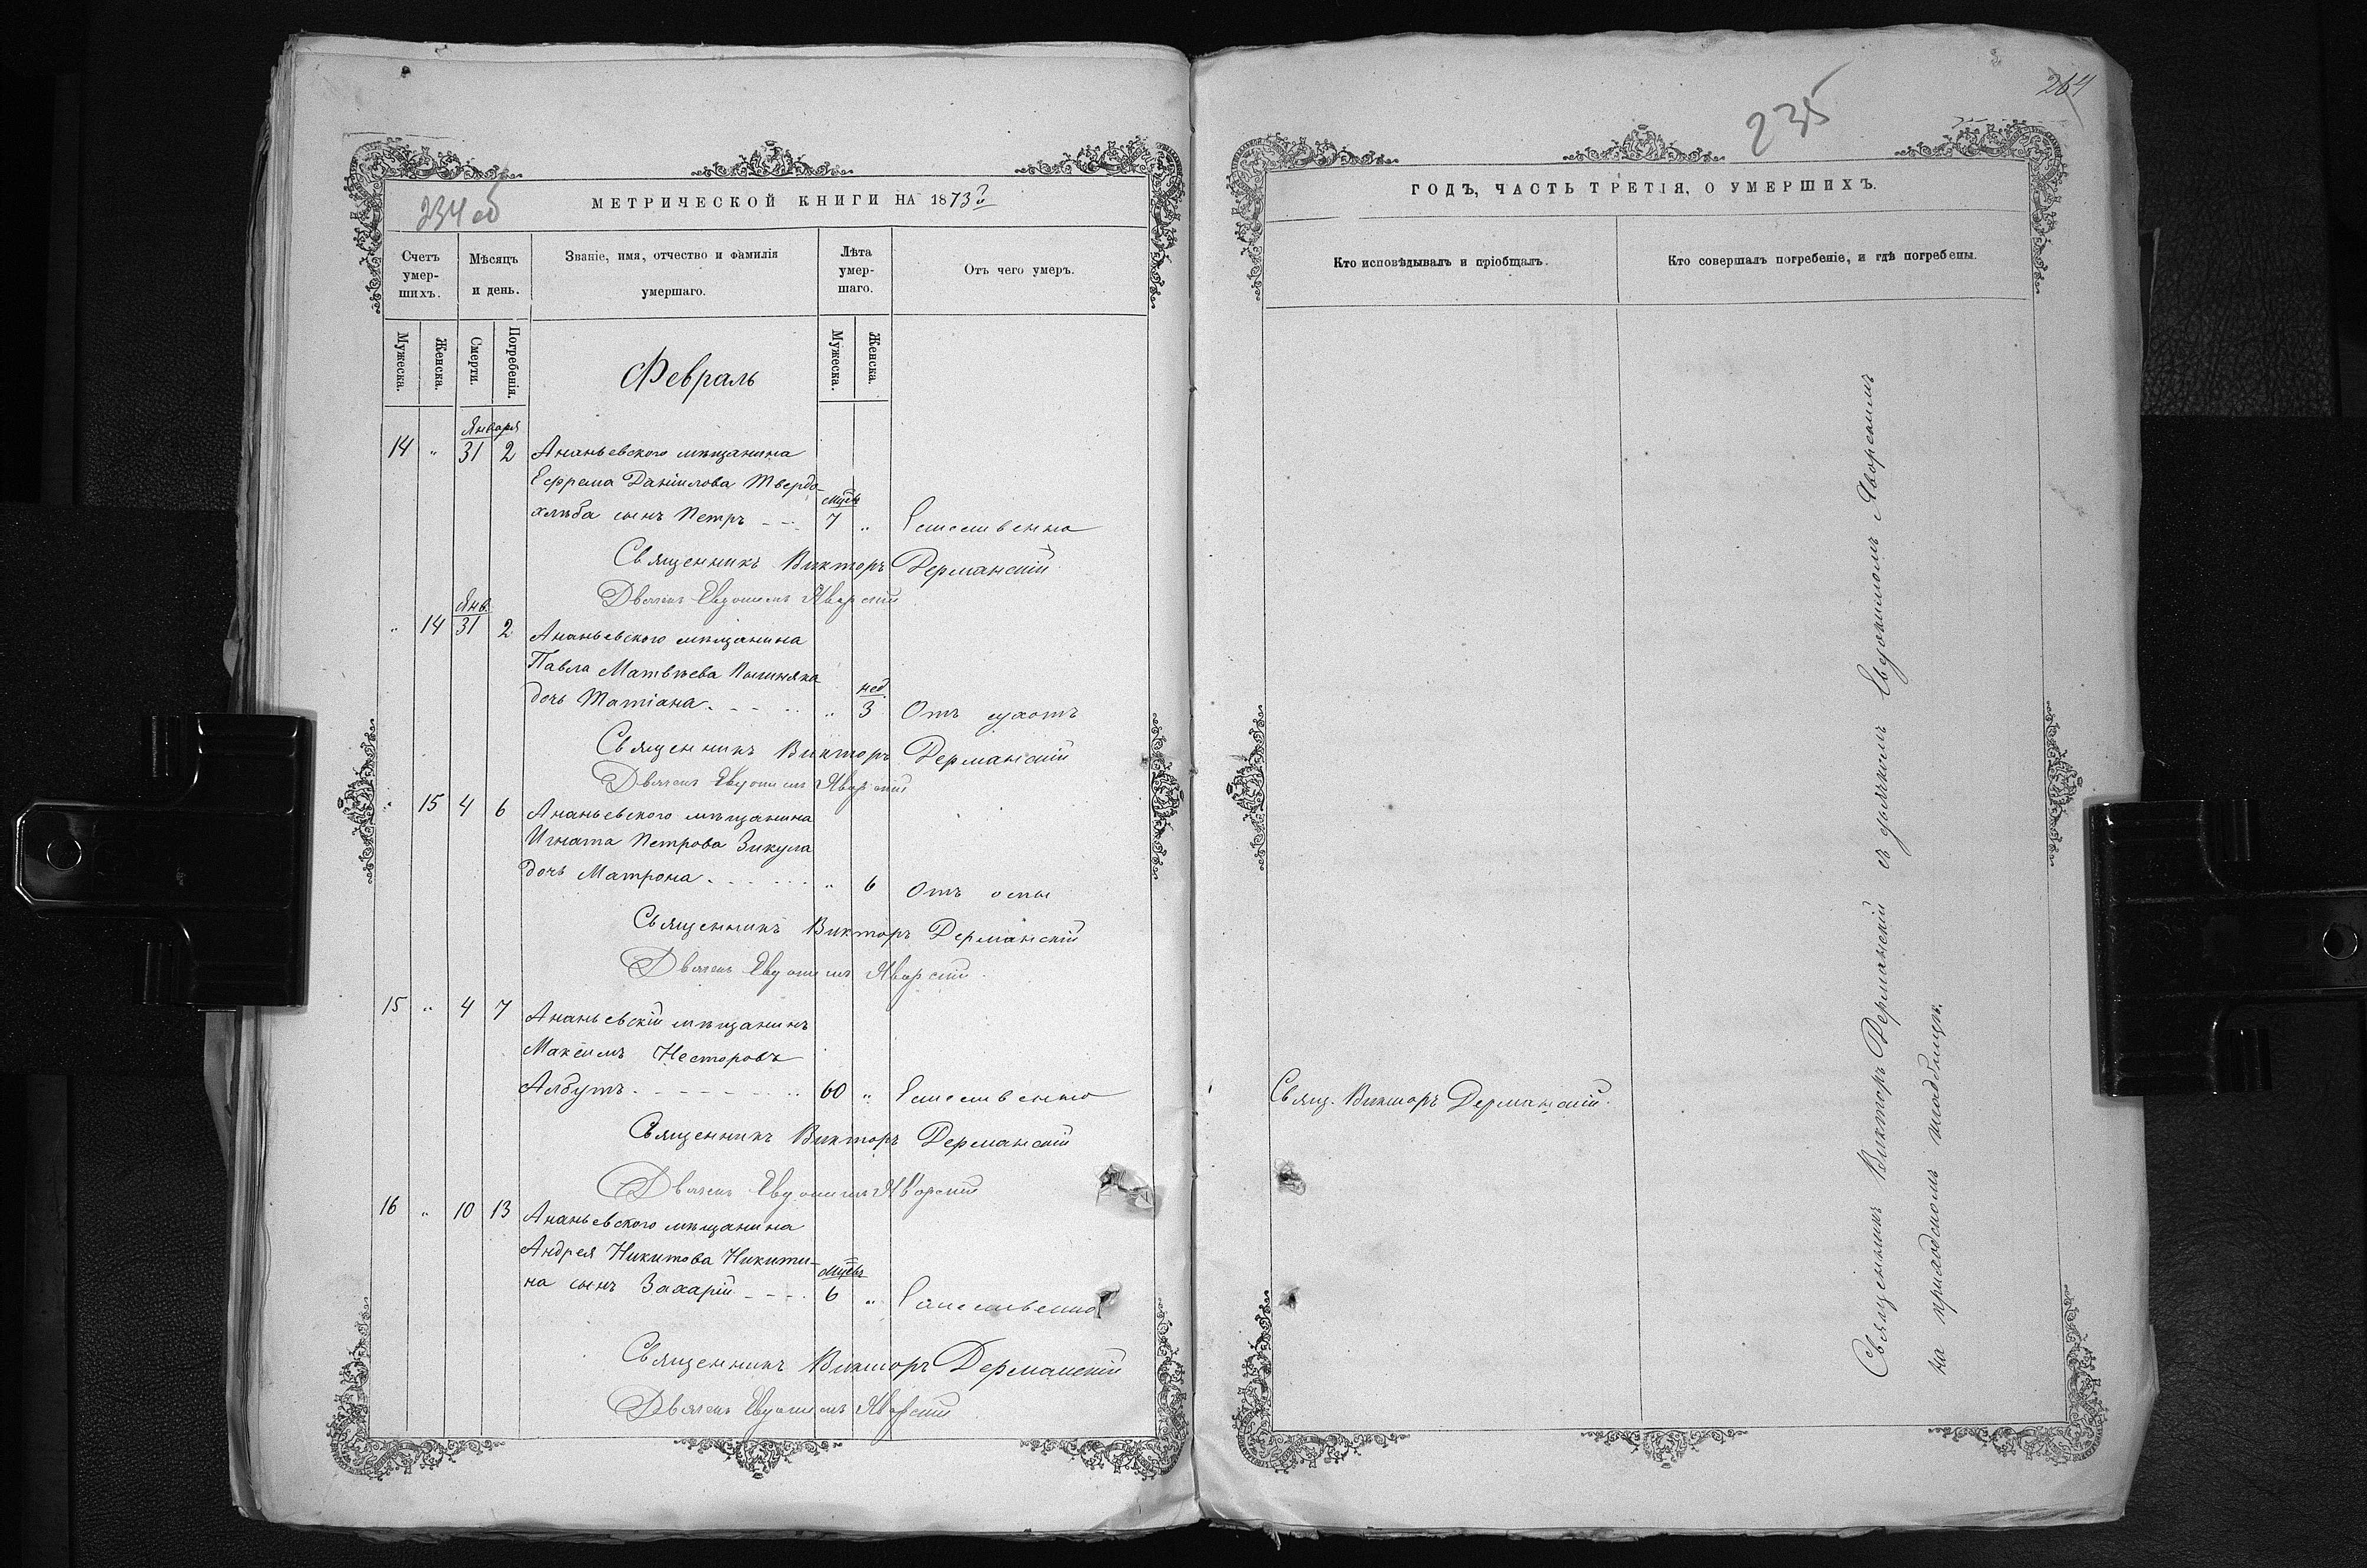 234 об
МЕТРИЧЕСКОЙ КНИГИ НА 1873й
Счетъ умершихъ.
Мѣсяцъ и день.
Званіе, имя, отчество и фамилія умершаго.
Лѣта умершаго.
Отъ чего умеръ.
Мужеска.
Женска.
Смерти.
Погребенія.
Мужеска.
Женска.
Февраль
Января
14 " 31 2 Ананьевского мѣщанина
Ефрема Даніилова Твердо-
хлѣба сынъ Петръ мцвъ 7 " Естественно
Священникъ Викторъ Дерманскій
Дьячекъ Евдокимъ Яворскій
Янв.
" 14 31 2 Ананьевского мѣщанина
Павла Матвѣева
дочь Татіана " нед. 3 Отъ сухотъ
Священникъ Викторъ Дерманскій
Дьячекъ Евдокимъ Яворскій
" 15 4 6 Ананьевского мѣщанина
Игната Петрова Зикула
дочь Матрона " 6 Отъ оспы
Священникъ Викторъ Дерманскій
Дьячекъ Евдокимъ Яворскій
15 " 4 7 Ананьевскій мѣщанинъ
Максимъ Несторовъ
Албутъ 60 " Естественно
Священникъ Викторъ Дерманскій
Дьячекъ Евдокимъ Яворскій
16 " 10 13 Ананьевского мѣщанина
Андрея Никитова Никити-
на сынъ Захарій мцвъ 6 " Естественно
Священникъ Викторъ Дерманскій
Дьячекъ Евдокимъ Яворскій
264
235
ГОДЪ, ЧАСТЬ ТРЕТІЯ, О УМЕРШИХЪ.
Кто исповѣдывалъ и пріобщалъ.
Кто совершалъ погребеніе, и гдѣ погребены.
Свящ. Викторъ Дерманскій.
Священникъ Викторъ Дерманскій съ дьячкомъ Евдокимомъ Яворскимъ
на приходскомъ кладбищѣ.